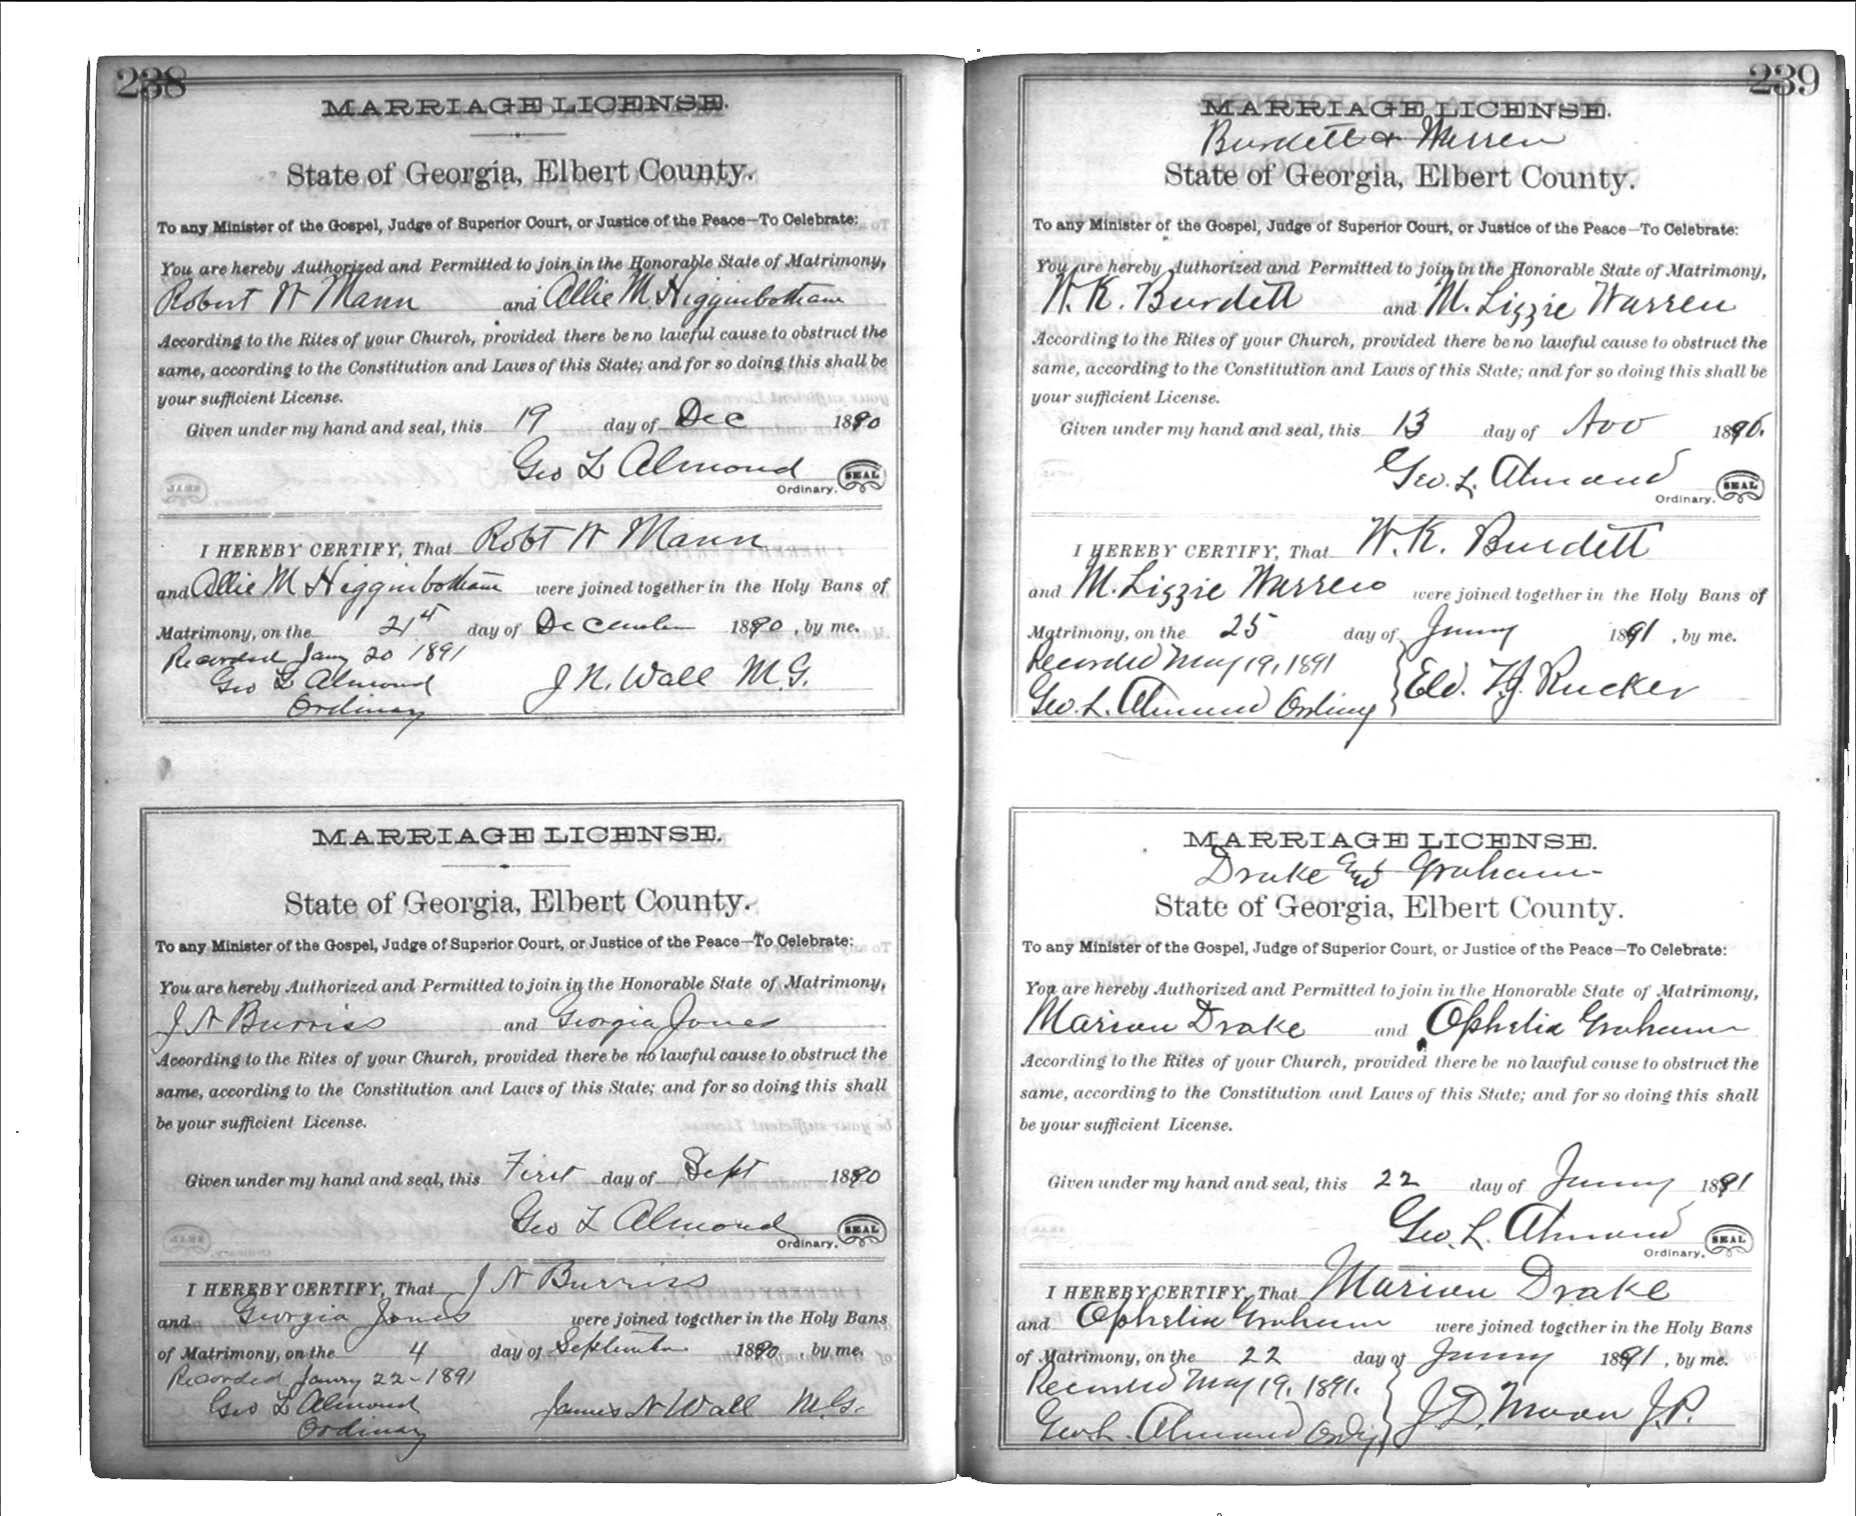 238
MARRIAGE LICENSE.
State of Georgia, Elbert County.
To any Minister of the Gospel, Judge of Superior Court, or Justice of the Peace—To Celebrate:
You are hereby Authorized and Permitted to join in the Honorable State of Matrimony,
Robert N Mann and Allie M Higginbotham
According to the Rites of your Church, provided there be no lawful cause to obstruct the
same, according to the Constitution and Laws of this State; and for so doing this shall be
your sufficient License.
Given under my hand and seal, this 19 day of Dec 1890
Geo L Almond
SEAL
Ordinary.
I HEREBY CERTIFY, That Robt N Mann
and Allie M Higginbotham were joined together in the Holy Bans of
Matrimony, on the 21st day of December 1890, by me.
Recorded Jany 20 1891
Geo L Almond J. N. Wall M.G.
Ordinary
MARRIAGE LICENSE.
State of Georgia, Elbert County.
To any Minister of the Gospel, Judge of Superior Court, or Justice of the Peace—To Celebrate:
You are hereby Authorized and Permitted to join in the Honorable State of Matrimony,
J N Burriss and Georgia Jones
According to the Rites of your Church, provided there be no lawful cause to obstruct the
same, according to the Constitution and Laws of this State; and for so doing this shall
be your sufficient License.
Given under my hand and seal, this First day of Sept 1890
Geo L Almond
SEAL
Ordinary.
I HEREBY CERTIFY, That J N Burriss
and Georgia Jones were joined together in the Holy Bans
of Matrimony, on the 4 day of September 1890, by me.
Recorded Janry 22-1891
Geo L Almond James N Wall M.G.
Ordinary
239
MARRIAGE LICENSE.
Burdett & Warren
State of Georgia, Elbert County.
To any Minister of the Gospel, Judge of Superior Court, or Justice of the Peace—To Celebrate:
You are hereby Authorized and Permitted to join in the Honorable State of Matrimony,
W. K. Burdett and M. Lizzie Warren
According to the Rites of your Church, provided there be no lawful cause to obstruct the
same, according to the Constitution and Laws of this State; and for so doing this shall be
your sufficient License.
Given under my hand and seal, this 13 day of Nov 1890.
Geo. L. Almond
SEAL
Ordinary.
I HEREBY CERTIFY, That W. K. Burdett
and M. Lizzie Warren were joined together in the Holy Bans of
Matrimony, on the 25 day of Janny 1891, by me.
Recorded May 19, 1891
Geo. L. Almond Ordiny Eld. T. J. Rucker
MARRIAGE LICENSE.
Drake and Graham
State of Georgia, Elbert County.
To any Minister of the Gospel, Judge of Superior Court, or Justice of the Peace—To Celebrate:
You are hereby Authorized and Permitted to join in the Honorable State of Matrimony,
Marion Drake and Ophelia Graham
According to the Rites of your Church, provided there be no lawful cause to obstruct the
same, according to the Constitution and Laws of this State; and for so doing this shall
be your sufficient License.
Given under my hand and seal, this 22 day of Janny 1891
Geo. L. Almond
SEAL
Ordinary.
I HEREBY CERTIFY, That Marion Drake
and Ophelia Graham were joined together in the Holy Bans
of Matrimony, on the 22 day of Janny 1891, by me.
Recorded May 19, 1891.
Geo L. Almond Ordy J. D. Moon J.P.